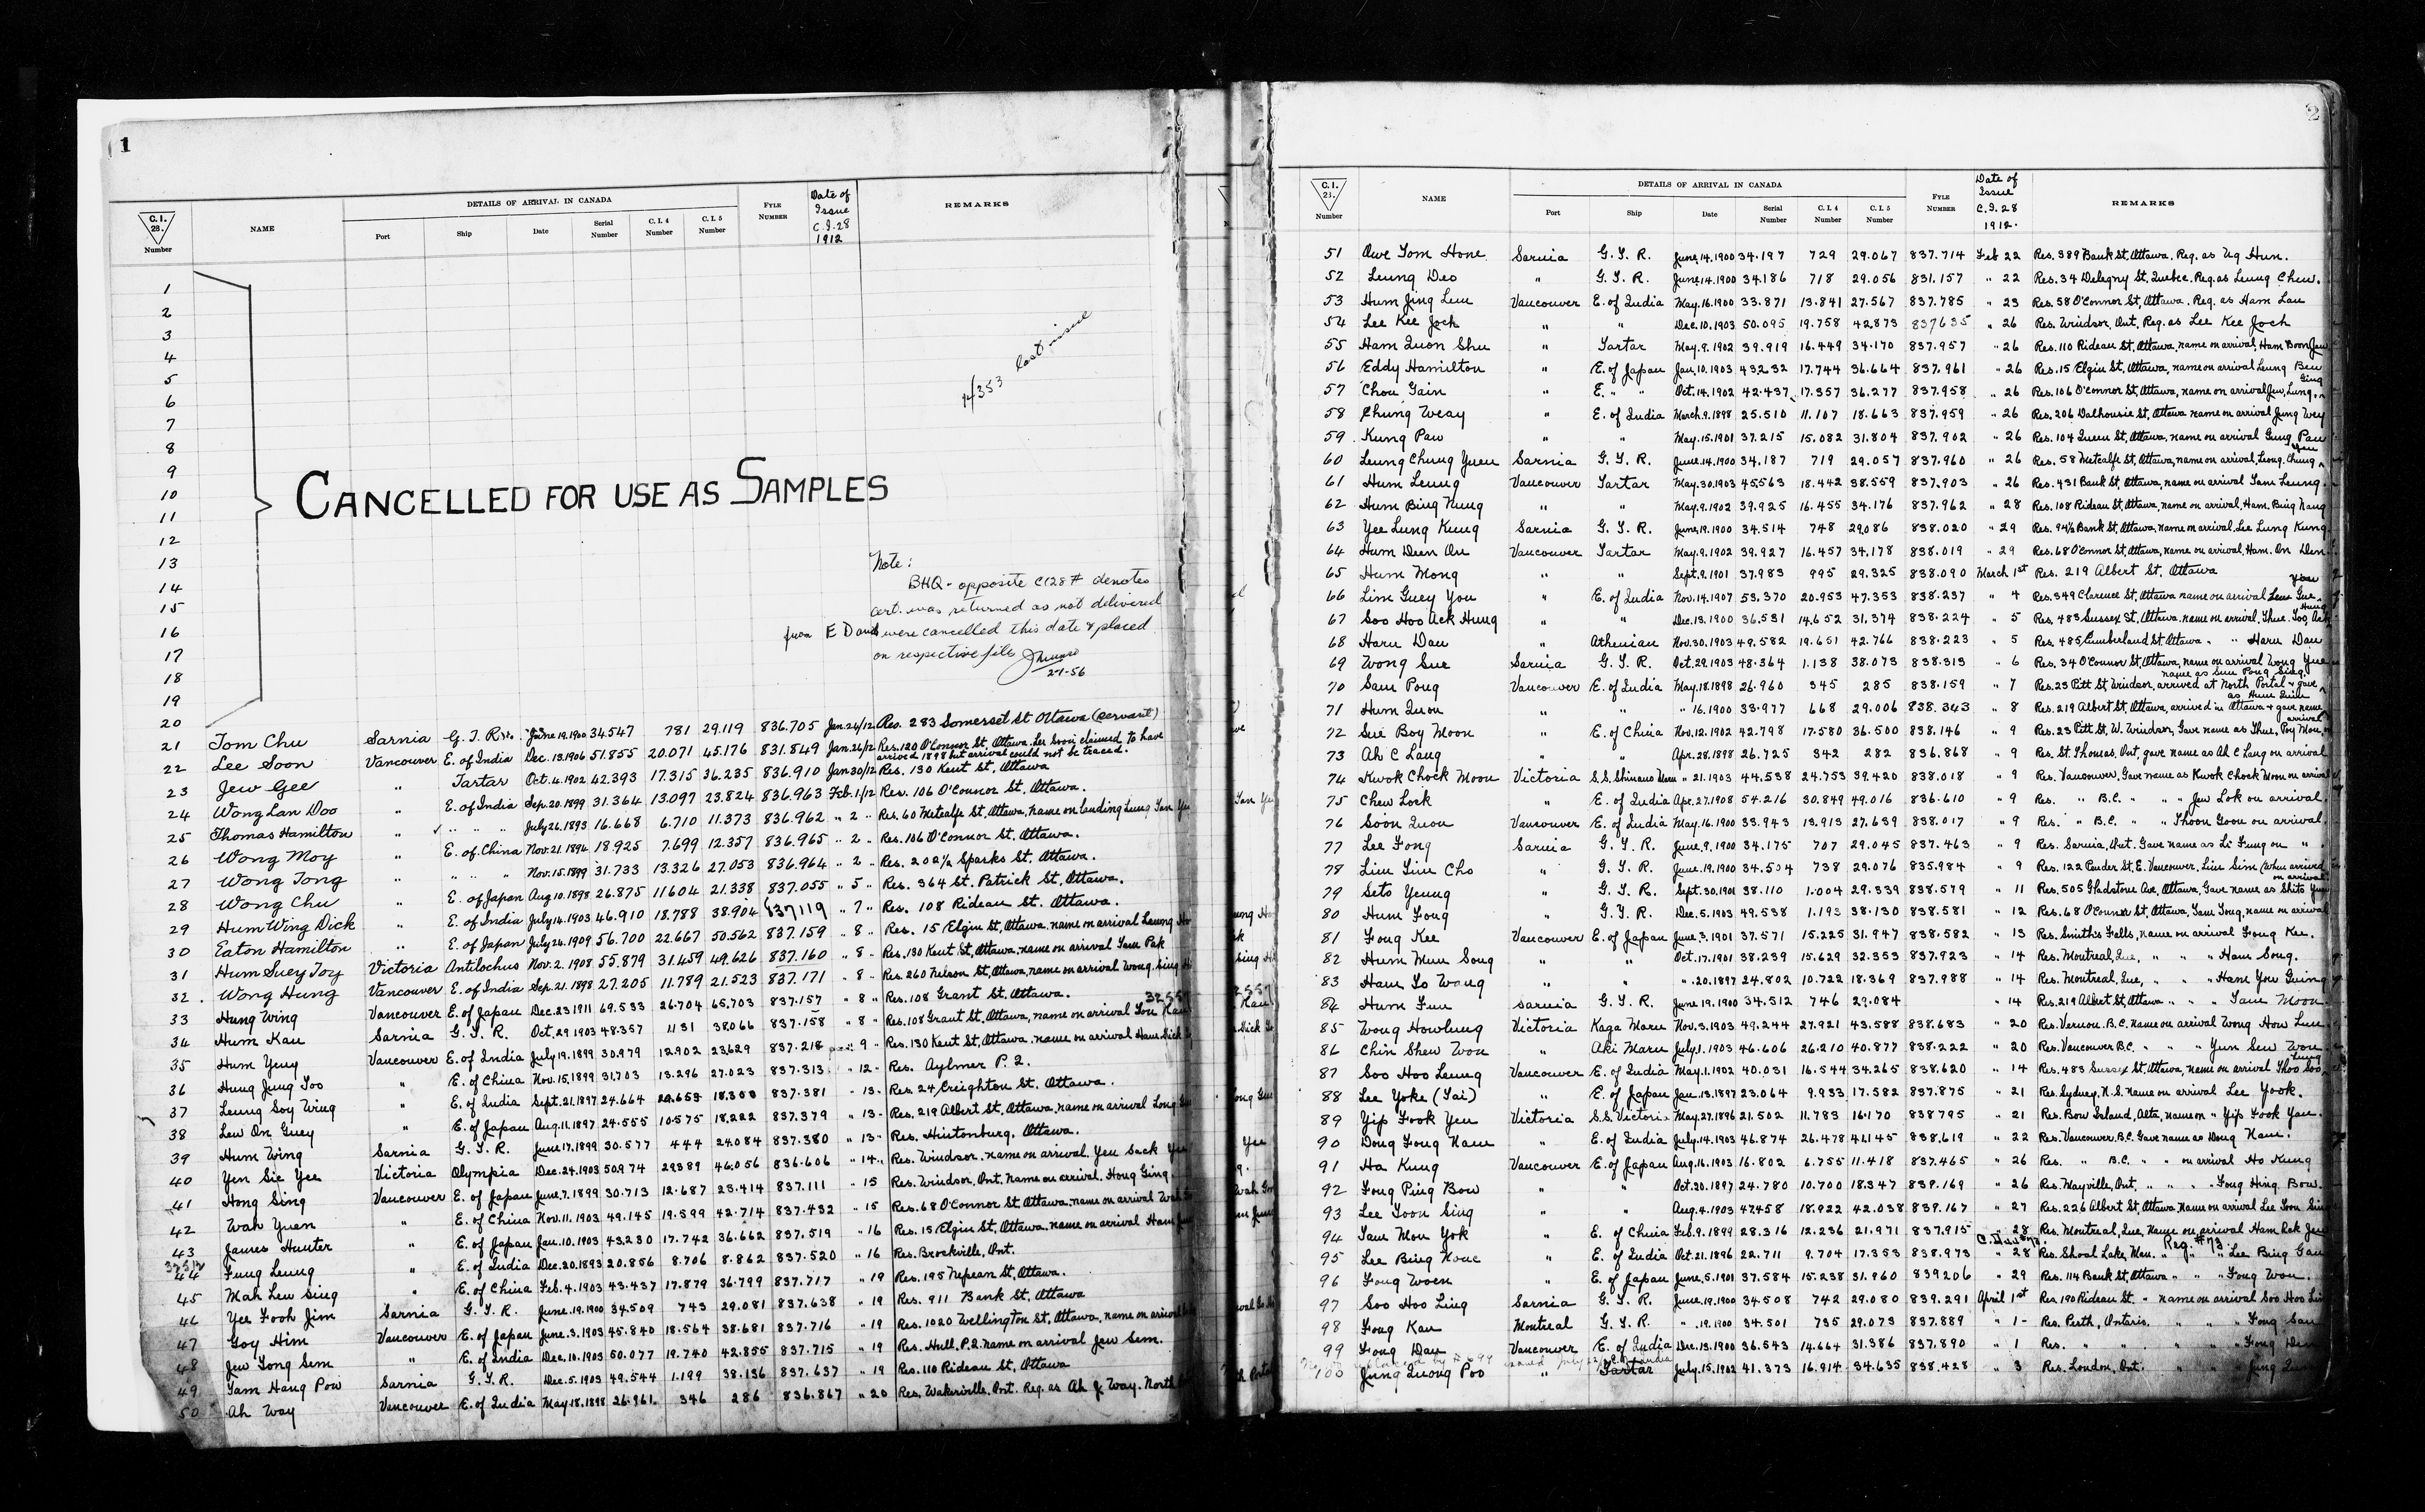 1
C.I. 28. Number
NAME
DETAILS OF ARRIVAL IN CANADA
Port Ship Date Serial Number C.I.4 Number C.I.5 Number
FYLE NUMBER
Date of Issue C.I.28 1912
REMARKS
1
2
3
4
5
6
7
8
9
10
11
12
13
14
15
16
17
18
19
20
last issue
CANCELLED FOR USE AS SAMPLES
Note:
BHQ - opposite CI28 # denotes
cert. was returned as not delivered
from E D and were cancelled this date & placed
on respective file
21 Tom Chu Sarnia G. T. R. June 19.1900 34.547 781 29.119 836.705 Jan.24/12 Res. 283 Somerset St Ottawa (servant)
22 Lee Soon Vancouver E. of India Dec. 13.1906 51.855 20.071 45.176 831.849 Jan.26/12 Res. 120 O'Connor St, Ottawa. Lee Soon claimed to have arrived 1898 but arrival could not be traced.
23 Jew Gee " Tartar Oct. 4.1902 42.393 17.315 36.235 836.910 Jan 30/12 Res. 130 Kent St, Ottawa
24 Wong Lan Doo " E. of India Sep. 20.1899 31.364 13.097 23.824 836.963 Feb. 1/12 Res. 106 O'Connor St. Ottawa.
25 Thomas Hamilton " " " " July 26.1893 16.668 6.710 11.373 836.962 " 2 " Res. 60 Metcalfe St, Ottawa, name on landing Lung Tan
26 Wong Moy " E. of China Nov. 21.1894 18.925 7.699 12.357 836.965 " 2 " Res. 106 O'Connor St, Ottawa.
27 Wong Tong " " " " Nov. 15.1899 31.733 13.326 27.053 836.964 " 2 " Res. 202½ Sparks St. Ottawa.
28 Wong Chu " E. of Japan Aug 10.1898 26.875 11604 21.338 837.055 " 5 " Res. 364 St. Patrick St, Ottawa.
29 Hum Wing Dick " E. of India July 14.1903 46.910 18.788 38.904 837119 " 7 " Res. 108 Rideau St. Ottawa.
30 Eaton Hamilton " E. of Japan July 26.1909 56.700 22.667 50.562 837.159 " 8 " Res. 15 Elgin St, Ottawa. name on arrival Leung
31 Hum Suey Toy Victoria Antilochus Nov. 2. 1908 55.879 31.459 49.626 837.160 " 8 " Res. 130 Kent St, Ottawa. name on arrival Tam Pak
32 Wong Hung Vancouver E. of India Sep. 21.1898 27.205 11.789 21.523 837.171 " 8 " Res. 260 Nelson St, Ottawa, name on arrival Wong
33 Hung Wing Vancouver E. of Japan Dec. 23 1911 69.533 26.704 65.703 837.157 " 8 " Res. 108 Grant St. Ottawa.
34 Hum Kau Sarnia G. T. R. Oct. 29 1903 48.357 1131 38.066 837.158 " 8 " Res. 108 Grant St, Ottawa, name on arrival Tom Kau
35 Hum Yeny Vancouver E. of India July 19.1899 30.979 12.902 23.629 837.218 " 9 " Res. 130 Kent St, Ottawa. name on arrival Ham Dick
36 Hung Jung Too " E. of China Nov. 15.1899 31.703 13.296 27.023 837.313 " 12 " Res. Aylmer P. Q.
37 Leung Soy Wing " E. of India Sept. 21.1897 24.664 18.300 837.381 " 13 " Res. 24 Creighton St. Ottawa.
38 Lew On Guey " E. of Japan Aug. 11.1897 24.555 10.575 18.222 837.379 " 13 " Res. 219 Albert St, Ottawa, name on arrival Long
39 Hum Wing Sarnia G. T. R. June 17.1899 30.577 444 24.084 837.380 " 13 " Res. Hintonburg, Ottawa.
40 Yen Sic Yee Victoria Olympia Dec. 24.1903 50.974 29389 46.056 836.606 " 14 " Res. Windsor. name on arrival. Yen Sack
41 Hong Sing Vancouver E. of Japan June. 7. 1899 30.713 12.687 23.414 837.111 " 15 Res. Windsor, Ont. name on arrival. Hong Ging.
42 Wah Yuen " E. of China Nov. 11. 1903 49.145 19.399 42.714 837.432 " 15 Res. 68 O'Connor St, Ottawa, name on arrival Wah
43 James Hunter " E. of Japan Jan. 10. 1903 43.230 17.742 36.662 837.519 " 16 Res. 15 Elgin St, Ottawa. name on arrival Ham
44 Fung Leung " E. of India Dec. 20.1893 20.856 8.706 8.862 837.520 " 16 Res. Brockville, Ont.
45 Mah Lew Sing " E. of China Feb. 4.1903 43.437 17.879 36.799 837.717 " 19 Res. 195 Nepean St, Ottawa.
46 Yee Fooh Jim Sarnia G. T. R. June. 19.1900 34.509 743 29.081 837.638 " 19 Res. 911 Bank St, Ottawa
47 Goy Him Vancouver E. of Japan June. 3. 1903 45.840 18.564 38.681 837.716 " 19 Res. 1020 Wellington St, Ottawa, name on arrival
48 Jew Tong Sem " E. of India Dec. 10.1903 50.077 19.740 42.855 837.715 " 19 Res. Hull. P.Q. name on arrival Jew Sem.
49 Tam Hang Pow Sarnia G. T. R. Dec. 5. 1903 49.544 1.199 38.136 837.637 " 19 Res. 110 Rideau St, Ottawa
50 Ah Way Vancouver E. of India May. 18. 1898 26.961 346 286 836.867 " 20 Res. Wakerville, Ont. Reg. as Ah J. Way. North
2
C.I. 21. Number
NAME
DETAILS OF ARRIVAL IN CANADA
Port Ship Date Serial Number C.I.4 Number C.I.5 Number
FYLE NUMBER
Date of Issue C.I.28 1912.
REMARKS
51 Owe Tom Hone Sarnia G. T. R. June, 14.1900 34.197 729 29.067 837.714 Feb 22 Res. 389 Bank St, Ottawa. Reg. as Ug Hun.
52 Leung Deo " G. T. R. June, 14.1900 34.186 718 29.056 831.157 " 22 Res. 34 Delegny St, Quebec. Reg. as Leung Chew.
53 Hum Jing Lem Vancouver E. of India May. 16.1900 33.871 13.841 27.567 837.785 " 23 Res. 58 O'Connor St, Ottawa. Reg. as Ham Lau
54 Lee Kee Jock " " Dec. 10.1903 50.095 19.758 42873 837635 " 26 Res. Windsor, Ont. Reg. as Lee Kee Joch
55 Ham Quon Shu " Tartar May. 9. 1902 39.919 16.449 34.170 837.957 " 26 Res. 110 Rideau St, Ottawa, name on arrival, Ham Boon
56 Eddy Hamilton " E. of Japan Jan. 10. 1903 43232 17.744 36.664 837.961 " 26 Res. 15 Elgin St, Ottawa, name on arrival Leung Ben
57 Chou Gain " E. " " Oct. 14. 1902 42.437 17.357 36.277 837.958 " 26 Res. 106 O'Connor St, Ottawa, name on arrival Jew, Lung. Ging
58 Chung Weay " E. of India March. 9. 1898 25.510 11.107 18.663 837.959 " 26 Res. 206 Dalhousie St, Ottawa name on arrival Jung Wey
59 Kung Paw " " May. 15.1901 37.215 15.082 31.804 837.902 " 26 Res. 104 Queen St, Ottawa, name on arrival Gung Pau
60 Leung Chung Yuen Sarnia G. T. R. June. 14.1900 34.187 719 29.057 837.960 " 26 Res. 58 Metcalfe St, Ottawa, name on arrival, Leong. Chung Yuen
61 Hum Leung Vancouver Tartar May. 30.1903 45.563 18.442 38.559 837.903 " 26 Res. 431 Bank St, Ottawa, name on arrival Tam Leung.
62 Hum Bing Kung " " May. 9. 1902 39.925 16.455 34.176 837.962 " 28 Res. 108 Rideau St, Ottawa, name on arrival, Ham. Bing
63 Yee Lung Kung Sarnia G. T. R. June, 19. 1900 34.514 748 29,086 838.020 " 29 Res. 94½ Bank St, Ottawa, name on arrival. Lee Lung Kung
64 Hum Deen On Vancouver Tartar May. 9. 1902 39.927 16.457 34.178 838.019 " 29 Res. 68 O'Connor St, Ottawa, name on arrival, Ham. On Den
65 Hum Mong " " Sept. 9. 1901 37.983 995 29.325 838.090 March 1st Res. 219 Albert St. Ottawa
66 Lim Guey You " E. of India Nov. 14.1907 53.370 20.953 47.353 838.237 " 4 Res. 349 Clarence St, Ottawa name on arrival Lem Gue You
67 Soo Hoo Ack Hung " " Dec. 13. 1900 36.531 14.652 31.374 838.224 " 5 Res. 483 Sussex St, Ottawa. name on arrival, Thue Too, Ack Hung
68 Haru Dau " Athenian Nov. 30.1903 49.582 19.651 42.766 838.223 " 5 Res. 485, Cumberland St Ottawa " " Haru Dau
69 Wong Sue Sarnia G. T. R. Oct. 29. 1903 48.364 1.138 38.073 838.313 " 6 Res. 34 O'Connor St, Ottawa, name on arrival Wong Yue
70 Sam Pong Vancouver E. of India May. 18.1898 26.960 345 285 838.159 " 7 Res. 23 Pitt St, Windsor, arrived at North Portal & gave name as Sum Pong Sing.
71 Hum Quon " " " 16.1900 33.977 668 29.006 838.343 " 8 Res. 219 Albert St, Ottawa, arrived in Ottawa & gave name as Hum Quin
72 Sue Boy Moon " E. of China Nov. 12.1902 42.798 17.580 36.500 838.146 " 9 Res. 23 Pitt St, W. Windsor, Gave name as Thue, Poy Mou, on arrival
73 Ah C Lang " " Apr. 28.1898 26.725 342 282 836.868 " 9 Res. St. Thomas, Ont, gave name as Ah C Lang on arrival
74 Kwok Chock Moon Victoria S.S. Shinano Maru " 21. 1903 44.538 24.753 39.420 838.018 " 9 Res. Vancouver. Gave name as Kwok Chock Moon on arrival
75 Chew Lock " E. of India Apr. 27.1908 54.216 30.849 49.016 836.610 " 9 Res. " B.C. " " " Jew Lok on arrival.
76 Soon Quon Vancouver E. of India May. 16.1900 33.943 13.913 27.639 838.017 " 9 Res. " B.C. " " Thoon Goon on arrival.
77 Lee Fong Sarnia G. T. R. June. 9. 1900 34.175 707 29.045 837.463 " 9 Res. Sarnia, Ont. Gave name as Li Fung on " "
78 Lim Sim Cho " G. T. R. June. 19.1900 34.504 738 29.076 835.984 " 9 Res. 122 Pender St, E. Vancouver, Lim Sim (when arrived
79 Seto Yeung " G. T. R. Sept. 30.1901 38.110 1.004 29.339 838.579 " 11 Res. 505 Gladstone Ave, Ottawa, Gave name as Shito on arrival
80 Hum Fong " G. T. R. Dec. 5.1903 49.538 1.193 38.130 838.581 " 12 Res. 68 O'Connor St, Ottawa, Tam Tong, name on arrival
81 Fong Kee Vancouver E. of Japan June. 3. 1901 37.571 15.225 31.947 838.582 " 13 Res. Smith's Falls, name on arrival Foug Kee.
82 Hum Mun Song " " Oct. 17.1901 38.239 15.629 32.353 837.923 " 14 Res. Montreal, Que, " " " Ham Song.
83 Ham Yo Wang " " " 20.1897 24.802 10.722 18.369 837.988 " 14 Res. Montreal, Que, " " " Ham You
84 Hum Fun Sarnia G. T. R. June 19.1900 34.512 746 29.084 " 14 Res. 219 Albert St, Ottawa " " " Tam Moon
85 Wong Howlung Victoria Kaga Maru Nov. 3. 1903 49.244 27.921 43.588 838.683 " 20 Res. Vernon. B.C. Name on arrival Wong How Lun
86 Chin Shew Won " Aki Maru July. 1. 1903 46.606 26.210 40.877 838.222 " 20 Res. Vancouver B.C. " " " Yun Seu Won
87 Soo Hoo Leung Vancouver E. of India May. 1. 1902 40.031 16.544 34.265 838.620 " 14 Res. 483 Sussex St, Ottawa, name on arrival Thoo Soo Lung
88 Lee Yoke (Tai) " E. of Japan Jan. 13.1897 23.064 9.933 17.582 837.875 " 21 Res. Sydney. N.S. Name on arrival Lee Yook.
89 Yip Fook Yen Victoria S.S. Victoria May. 27.1896 21.502 11.783 16.170 838795 " 21 Res. Bow Island, Alta, name on " Yip Fook Yan.
90 Doug Foug Nam " E. of India July. 14. 1903 46.874 26.478 41.145 838.619 " 22 Res. Vancouver. B.C. Gave name as Doug Nam.
91 Ha Kung Vancouver E. of Japan Aug. 16. 1903 16.802 6.755 11.418 837.465 " 26 Res. " B.C. " " on arrival Ho Kung
92 Foug Ping Bow " " Oct. 20.1897 24.780 10.700 18.347 839.169 " 26 Res. Mayville, Ont, " " " Foug Hing Bow.
93 Lee Toon Sing " " Aug. 4. 1903 47.458 18.922 42.038 839.167 " 27 Res. 226 Albert St, Ottawa Name on arrival Lee Toon Sing
94 Tam Mon Yok " E. of China Feb. 9. 1899 28.316 12.236 21.971 837.915 " 28 Res. Montreal, Que, Name on arrival Ham
95 Lee Bing Hone " E. of India Oct. 21.1896 22.711 9.704 17.353 838.973 " 28 Res. Shoal Lake, Man. " Reg. #73 " Lee Bing
96 Foug Woen " E. of Japan June, 5. 1901 37.584 15.238 31.960 839206 " 29 Res. 114 Bank St, Ottawa " " " Foug Won.
97 Soo Hoo Ling Sarnia G. T. R. June. 19.1900 34.508 742 29.080 839.291 April 1st Res. 190 Rideau St. " name on arrival Soo Hoo
98 Foug Kau Montreal G. T. R. " 19.1900 34.501 735 29.073 837.889 " 1 - Res. Perth, Ontario. " " " Foug
99 Foug Dau Vancouver E. of India Dec. 13. 1900 36.543 14.664 31.386 837.890 " 1 Res. " " " " Foug
100 Jung Quong Poo " Tartar July. 15. 1902 41.373 16.914 34.635 838.428 " 3 Res. London, Ont. " " " Jung